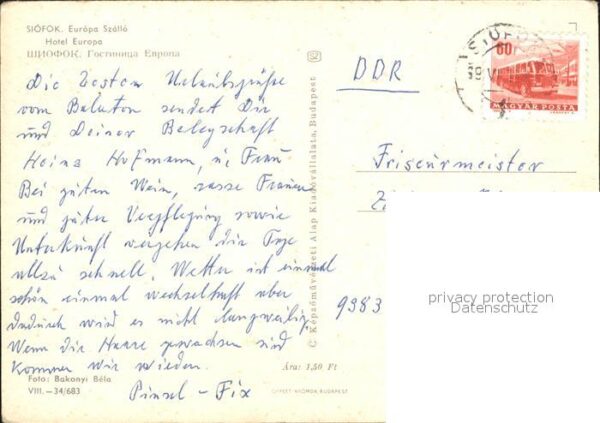 SIÓFOK. Európa Szálló
Hotel Europa
ШИОФОК. Гостиница Европа
Die besten Urlaubsgrüße
vom Balaton sendet Dir
und Deiner Belegschaft
Heinz Hofmann, u. Frau
Bei guten Wein, rasse Frauen
und guter Verpflegung sowie
Unterkunft vergehen die Tage
allzu schnell. Wetter ist einmal
schön einmal wechselhaft aber
dadurch wird es nicht langweilig.
Wenn die Haare gewachsen sind
kommen wir wieden.
Pinsel – Fix
Foto: Bakonyi Béla
VIII.—34/683
Ára: 1,50 Ft
OFFSET-NYOMDA, BUDAPEST
© Képzőművészeti Alap Kiadóvállalata, Budapest
DDR
SIÓFOK
60f
MAGYAR POSTA
Friseurmeister
9383
privacy protection
Datenschutz